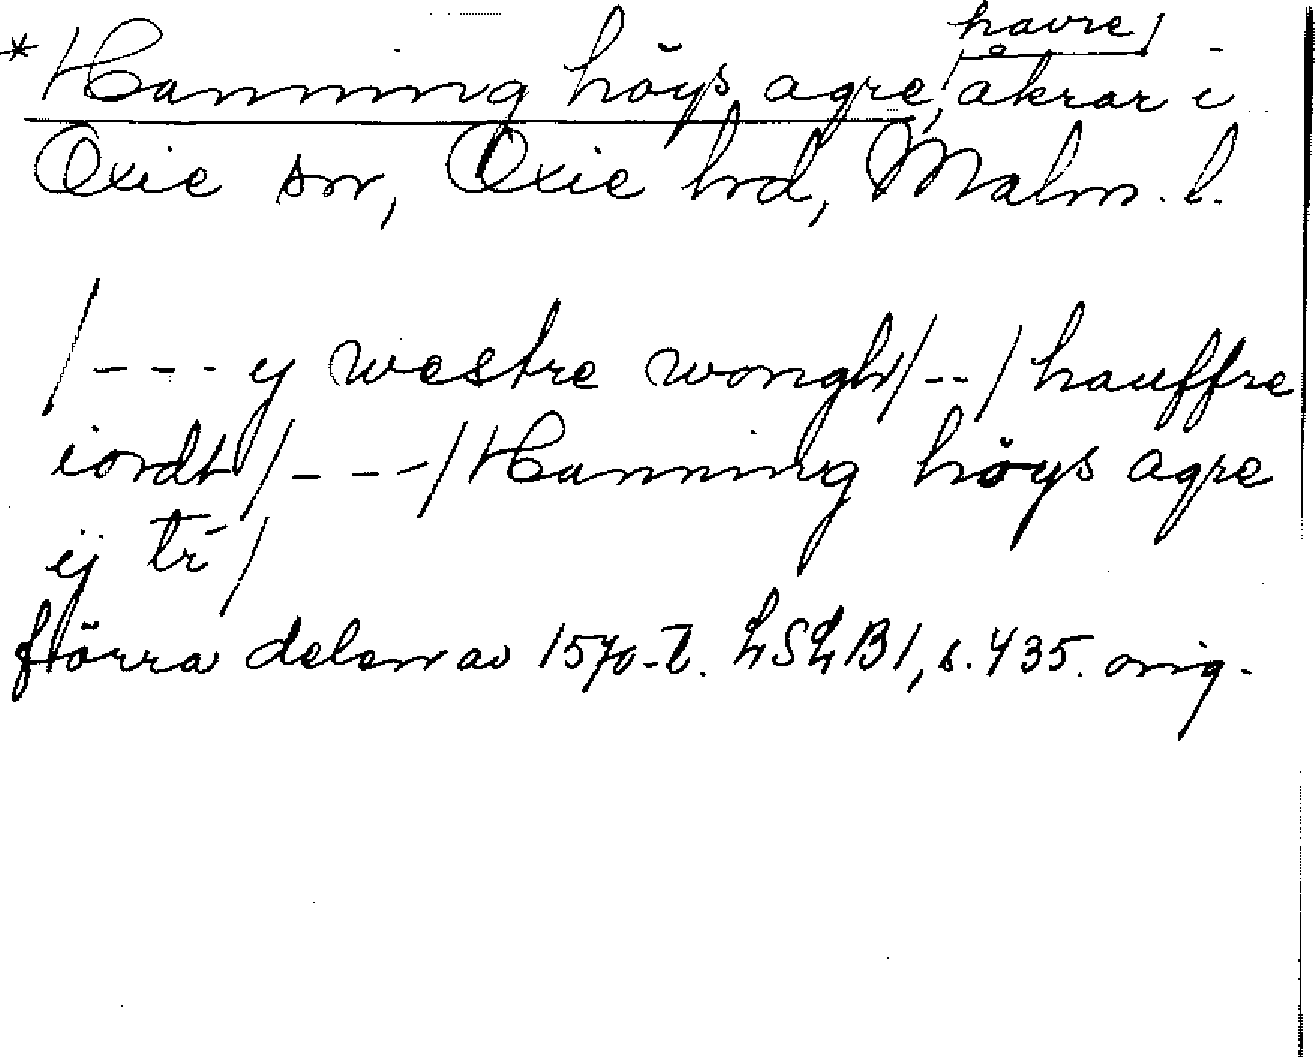 *Hanning höys agre, /havre/åkrar i
Oxie sn, Oxie hd, Malm. l.
/---y westre wongh/--/hauffre
iordt/---/Hanning höys agre
ij tr/
förra delen av 1570-t. LSLB1, s. 435. orig.